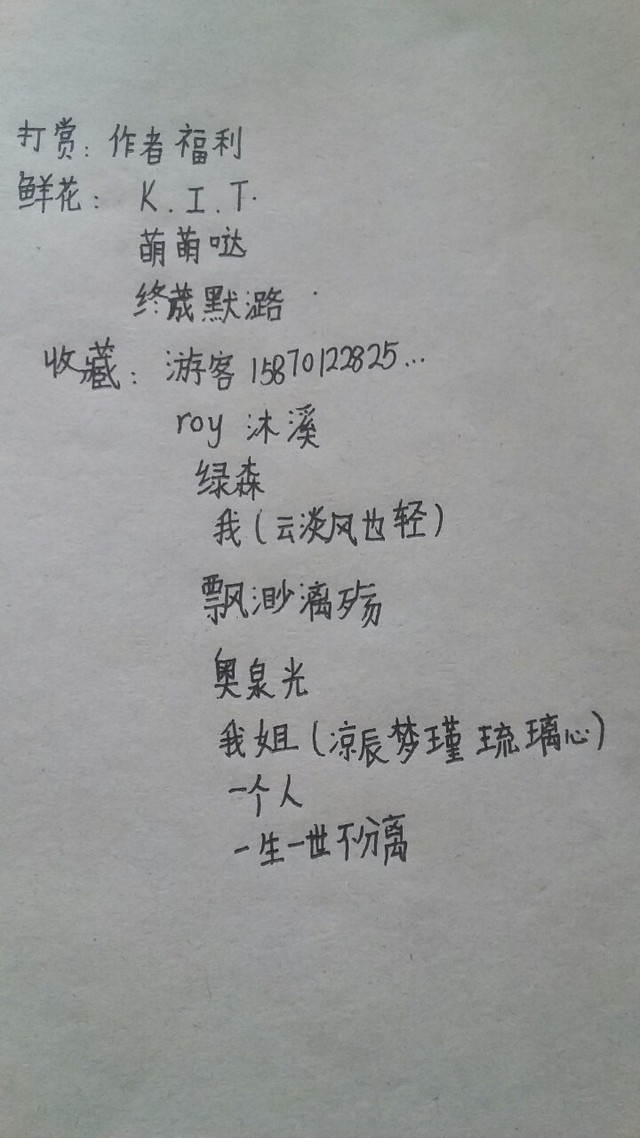 打赏：作者福利
鲜花：K.I.T.
萌萌哒
终晟默潞
收藏：游客15870122825...
roy 沐溪
绿森
我(云淡风也轻)
飘渺漓殇
奥泉光
我姐(凉辰梦瑾 琉璃心)
一个人
一生一世不分离